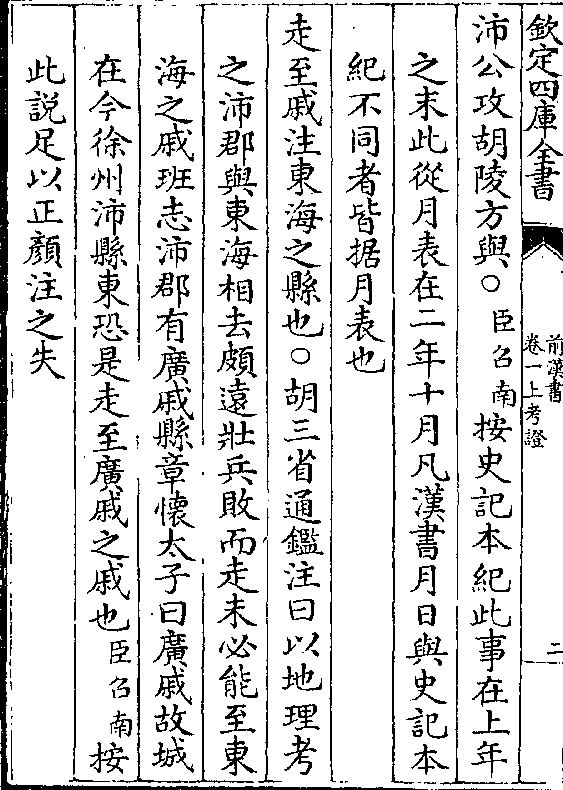 欽定四庫全書
前漢書
卷一上考證
二
沛公攻胡陵方與○臣召南按史記本紀此事在上年
之末此從月表在二年十月凡漢書月日與史記本
紀不同者皆据月表也
走至戚注東海之縣也○胡三省通鑑注曰以地理考
之沛郡與東海相去頗遠壯兵敗而走未必能至東
海之戚班志沛郡有廣戚縣章懷太子曰廣戚故城
在今徐州沛縣東恐是走至廣戚之戚也臣召南按
此説足以正顏注之失